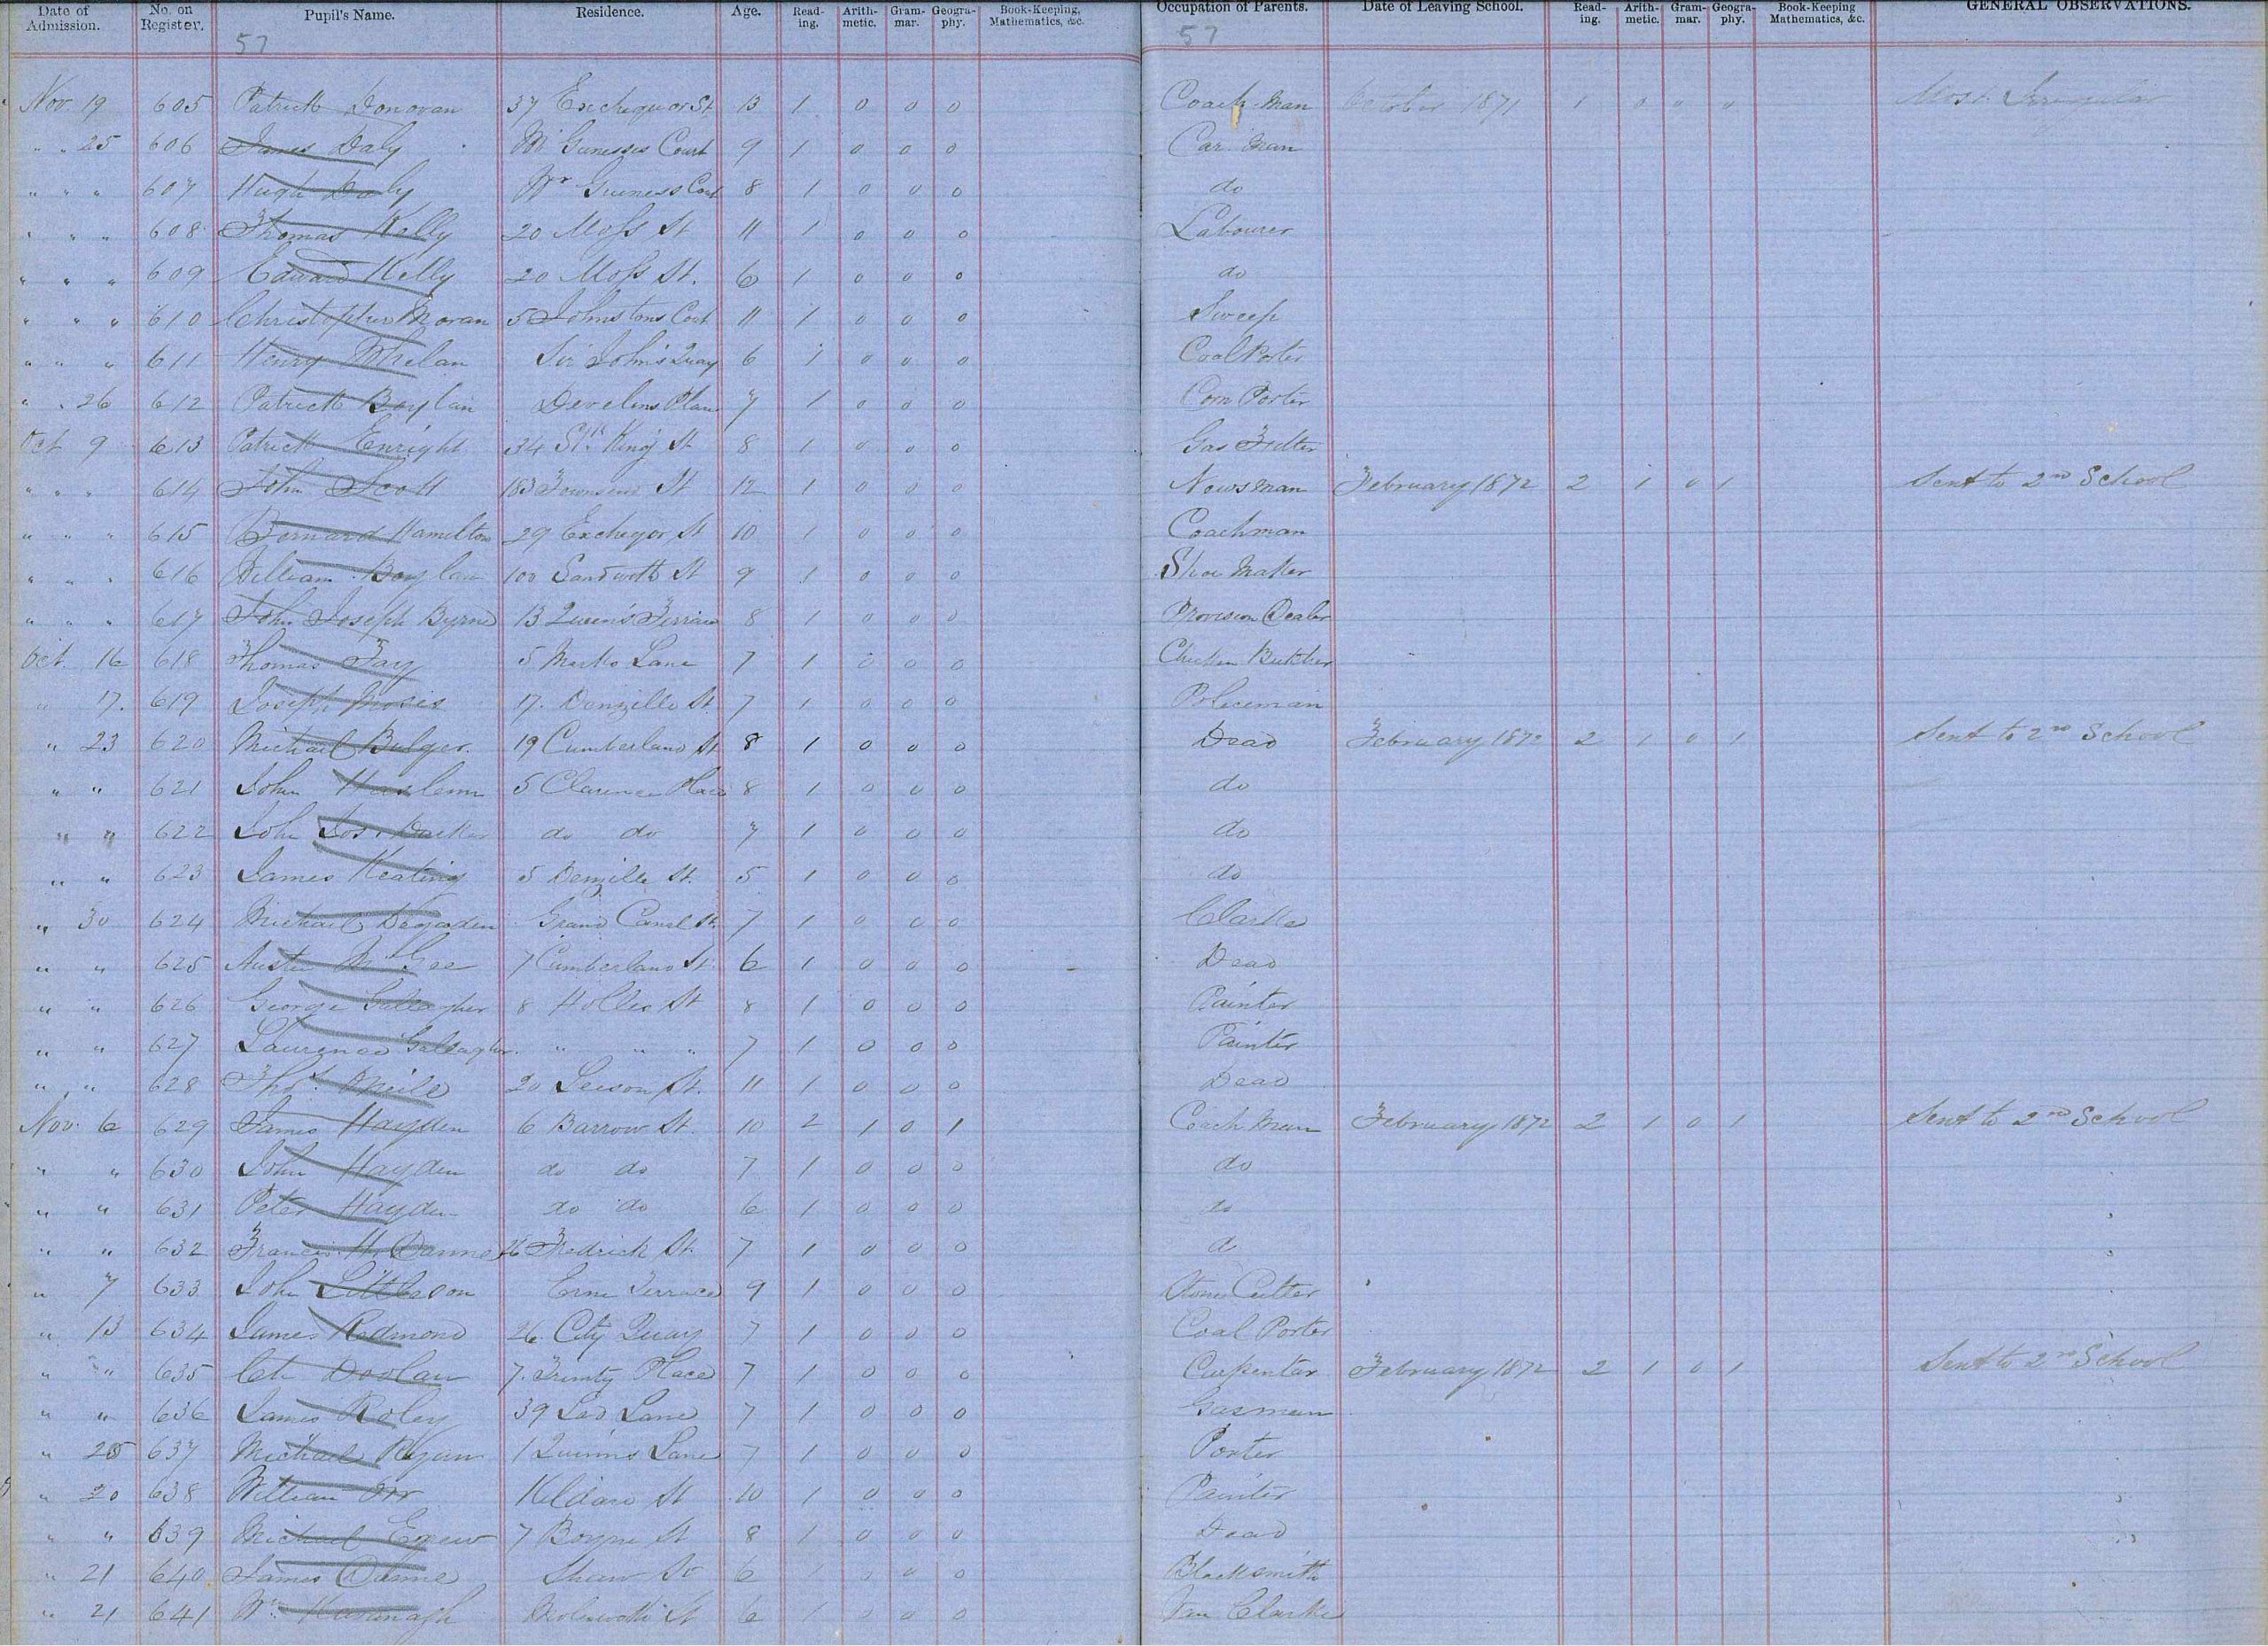 Date of Admission. No. on Register. Pupil's Name. Residence. Age. Read-ing. Arith-metic. Gram-mar. Geogra-phy. Book-Keeping, Mathematics, &c. Occupation of Parents. Date of Leaving School. Read-ing. Arith-metic. Gram-mar. Geogra-phy. Book-Keeping Mathematics, &c. GENERAL OBSERVATIONS.
57 57
Nov. 19 605 Patrick Donovan 37 Exchequor St 13 1 0 0 0 Coach-man October 1871 1 0 0 0 Most Irregular
" " 25 606 James Daly Court 9 1 0 0 0 Car man
" " " 607 Hugh Daly Court 8 1 0 0 0 do
" " " 608 Thomas Kelly 20 Moss St 11 1 0 0 0 Labourer
" " " 609 Edward Kelly 20 Moss St. 6 1 0 0 0 do
" " " 610 Christopher Moran 5 Johnstons Cort 11 1 0 0 0 Sweep
" " " 611 Henry Phelan Sir John's Quay 6 1 0 0 0 Coal Porter
" " 26 612 Patrick Boylan 7 1 0 0 0 Corn Porter
Oct 9 613 Patrick Enright 34 Sth King St 8 1 0 0 0 Gas Fitter
" " " 614 John Scott 183 Townsend St 12 1 0 0 0 Newsman February 1872 2 1 0 1 Sent to 2nd School
" " " 615 Bernard Hamilton 29 Exchegor St 10 1 0 0 0 Coachman
" " " 616 William Boylan 100 Sandwith St 9 1 0 0 0 Shoe Maker
" " " 617 John Joseph Byrne 13 Queen's Terrace 8 1 0 0 0 Provision Dealer
Oct. 16 618 Thomas Fay 5 Marks Lane 7 1 0 0 0 Chicken Butcher
" 17. 619 Joseph 17. Denzille St. 7 1 0 0 0 Policeman
" 23 620 Michael Bulger. 19 Cumberland St. 8 1 0 0 0 Dead February 1872 2 1 0 1 Sent to 2nd School
" " 621 John 5 Clarence Place 8 1 0 0 0 do
" " 622 John Jos. do do 7 1 0 0 0 do
" " 623 James Keating 5 Denzille St. 5 1 0 0 0 do
" 30 624 Michael Grand Canal St. 7 1 0 0 0 Clarke
" " 625 Austin McGee 7 Cumberland St. 6 1 0 0 0 Dead
" " 626 George Gallagher 8 Holles St 8 1 0 0 0 Painter
" " 627 Laurence Gallagher. " " " 7 1 0 0 0 Painter
" " 628 Thos. O'Neile 20 Leeson St. 11 1 0 0 0 Dead
Nov. 6 629 James Hayden 6 Barrow St. 10 2 1 0 1 Coach Man February 1872 2 1 0 1 Sent to 2nd School
" " 630 John Hayden do do 7 1 0 0 0 do
" " 631 Peter Hayden do do 6 1 0 0 0 do
" " 632 Francis 26 Fredrick St. 7 1 0 0 0 do
" 7 633 John Erne Terrace 9 1 0 0 0 Stone Cutter
" 13 634 James Redmond 26 City Quay 7 1 0 0 0 Coal Porter
" " 635 Ch Doolan 7. Trinity Place 7 1 0 0 0 Carpenter February 1872 2 1 0 1 Sent to 2nd School
" " 636 James Roley 39 Lad Lane 7 1 0 0 0 Gasman
" 637 Michael Ryan 1 Quinns Lane 7 1 0 0 0 Porter
" 20 638 William Orr Kildare St 10 1 0 0 0 Painter
" " 639 Michael 7 Boyne St 8 1 0 0 0 Dead
" 21 640 James Dunne Shaw St 6 1 0 0 0 Blacksmith
" 21 641 Wm. Kavanagh St 6 1 0 0 0 Van Clarke